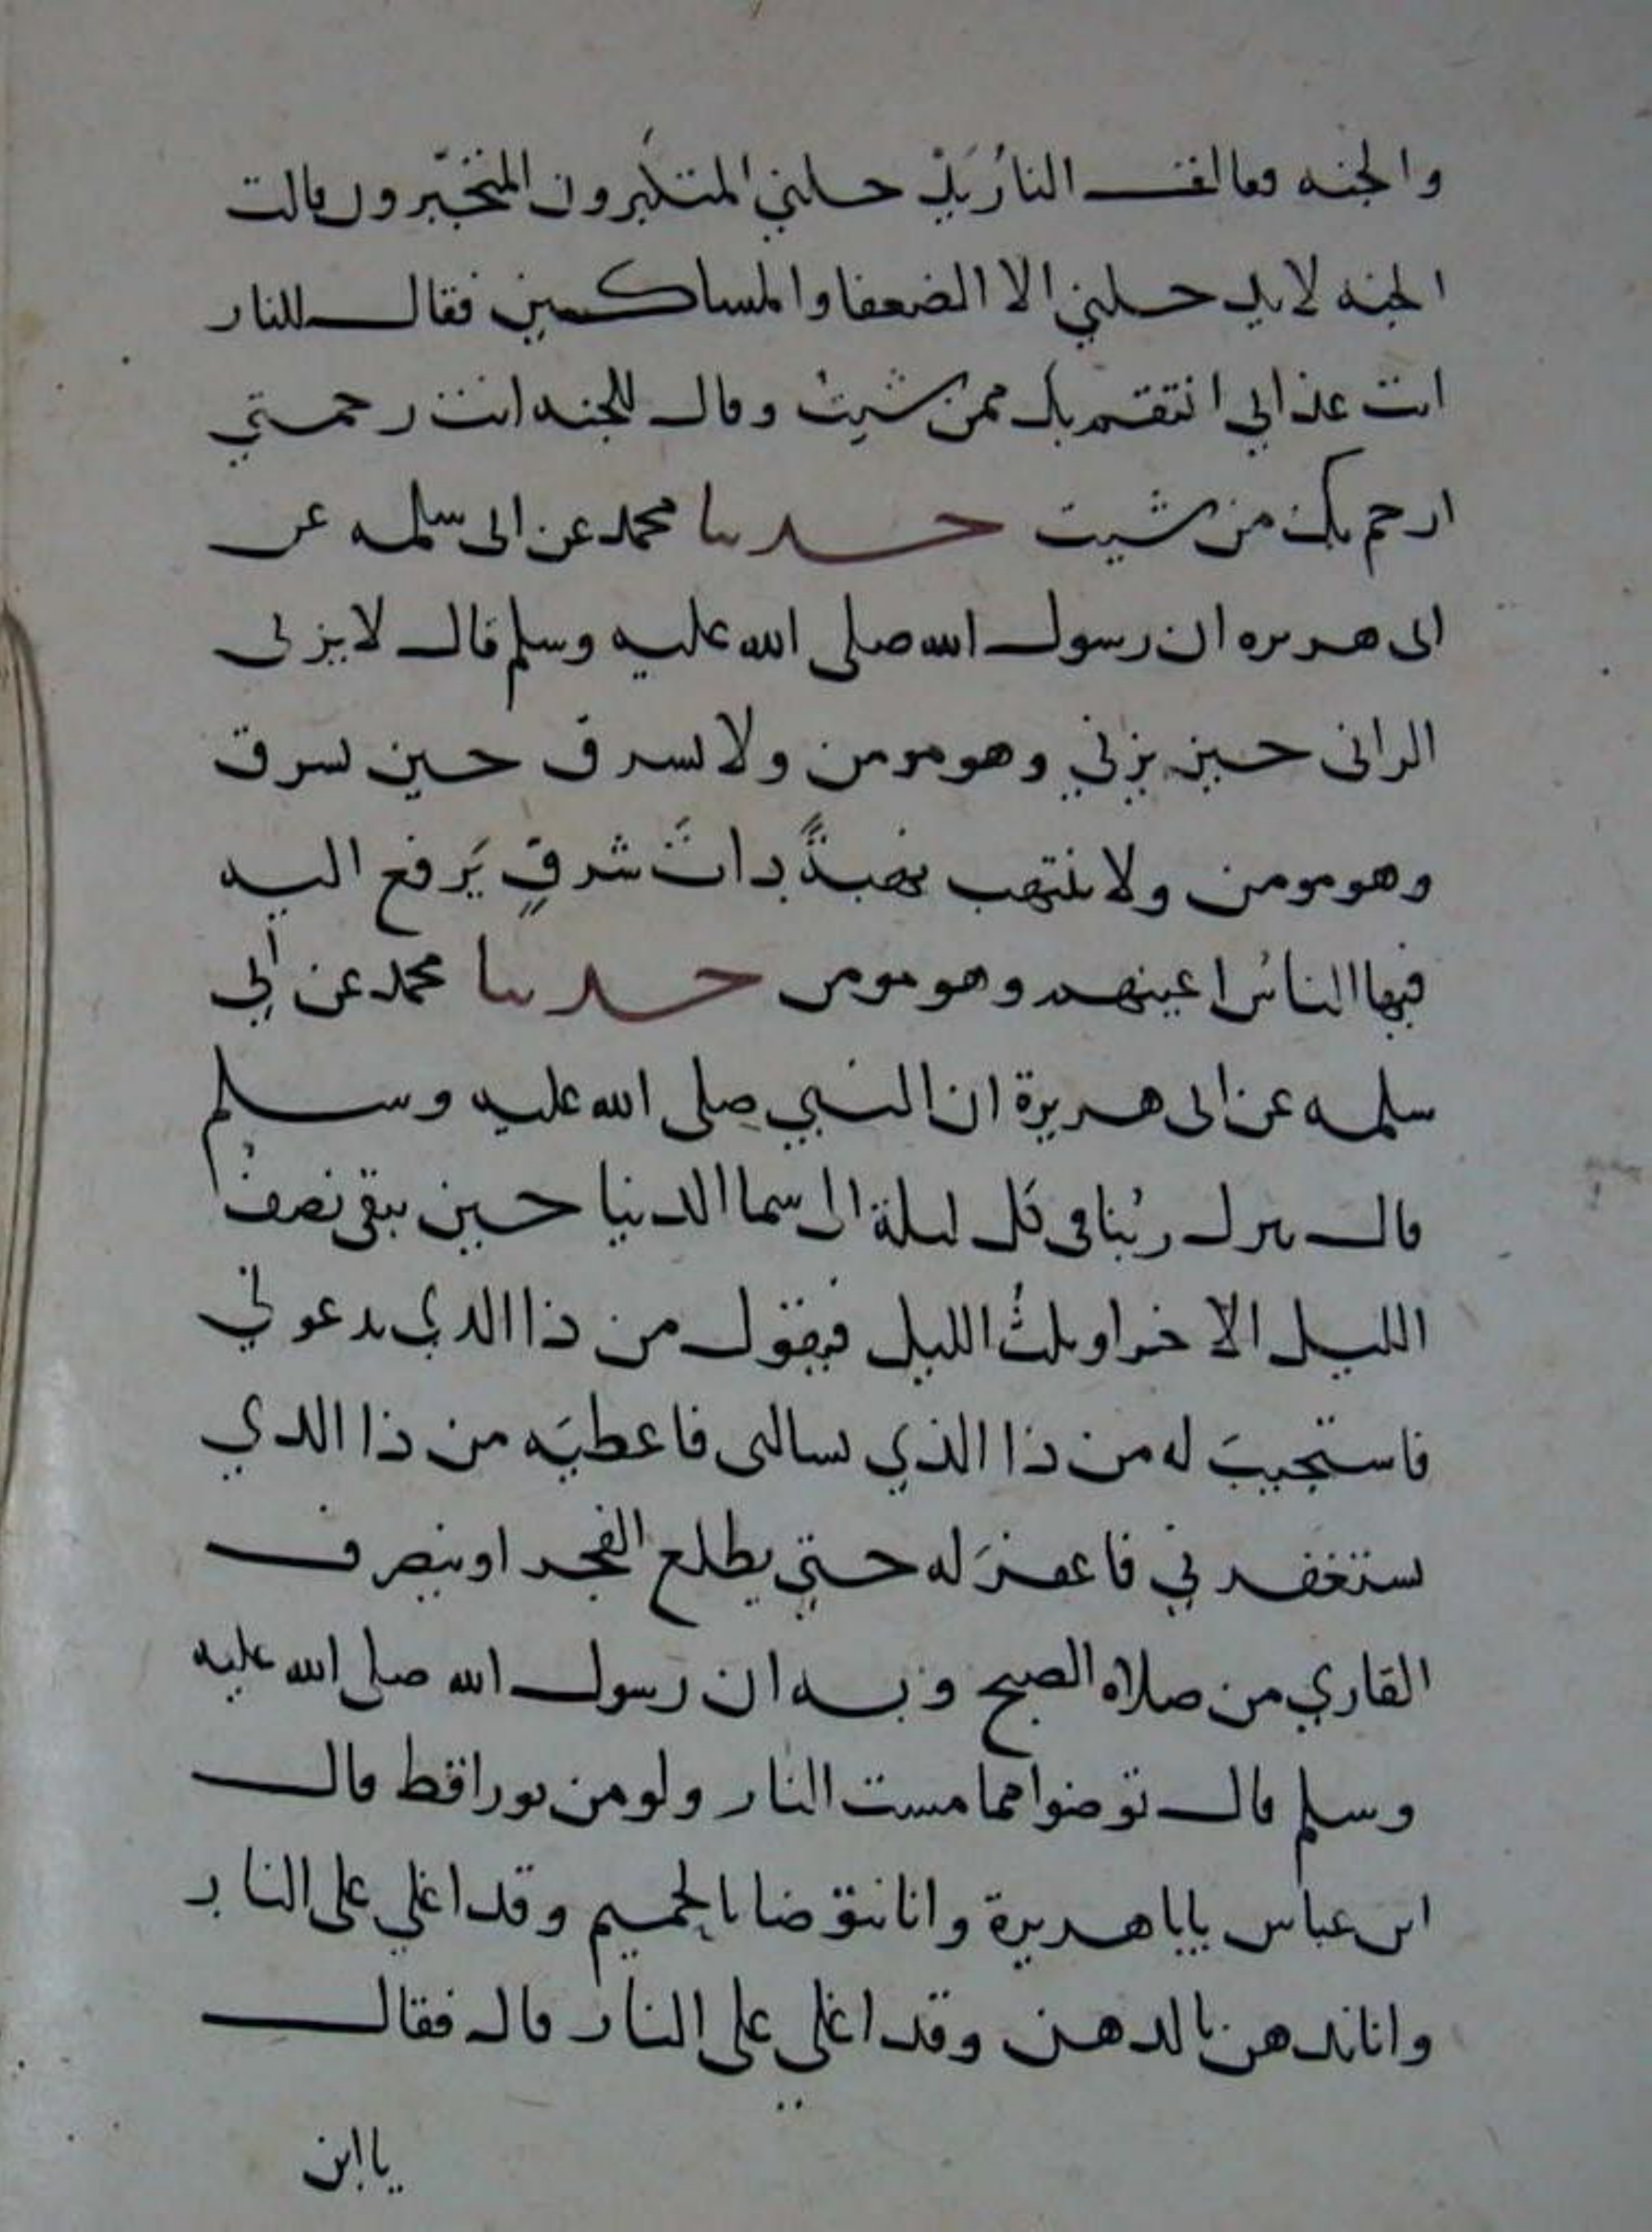 والجنه فقالت النارُ يَدْ خلني المتكَبرون المتجَبّرون قالت
الجنه لا يد خلني الا الضعفا والمساكين فقال للنار
انت عذابي انتقم بك ممن شيتُ وقال للجنه انت رحمتي
ارحم بك من شيت حدثنا محمد عن ابى سلمه عن
ابى هريره ان رسول الله صلى الله عليه وسلم قال لا يزنى
الزانى حين يزني وهو مومن ولا يسرق حين يسرق
وهو مومن ولا ينتهب نهبةً ذاتَ شرفٍ يَرفع اليه
فيها الناسُ اعينهم وهو مومن حدثنا محمد عن أبي
سلمه عن ابى هريرة ان النبي صلى الله عليه وسلم
قال ينزل ربُنا فى كل ليلة الى سما الدنيا حين يبقى نصفُ
الليل الاخر او ثلثُ الليل فيقول من ذا الذي يدعوني
فاستجيبَ له من ذا الذي يسالنى فاعطيَه من ذا الذي
يستغفرني فاغفرَ له حتي يطلع الفجر او ينصرف
القاري من صلاه الصبح وبه ان رسول الله صلى الله عليه
وسلم قال توضوا مما مست النار ولو من ثور اقط قال
ابن عباس يابا هريرة وانا نتوضا بالحميم وقد اغلي على النار
وانا ندهن بالدهن وقد اغلي على النار قال فقال
يا ابن